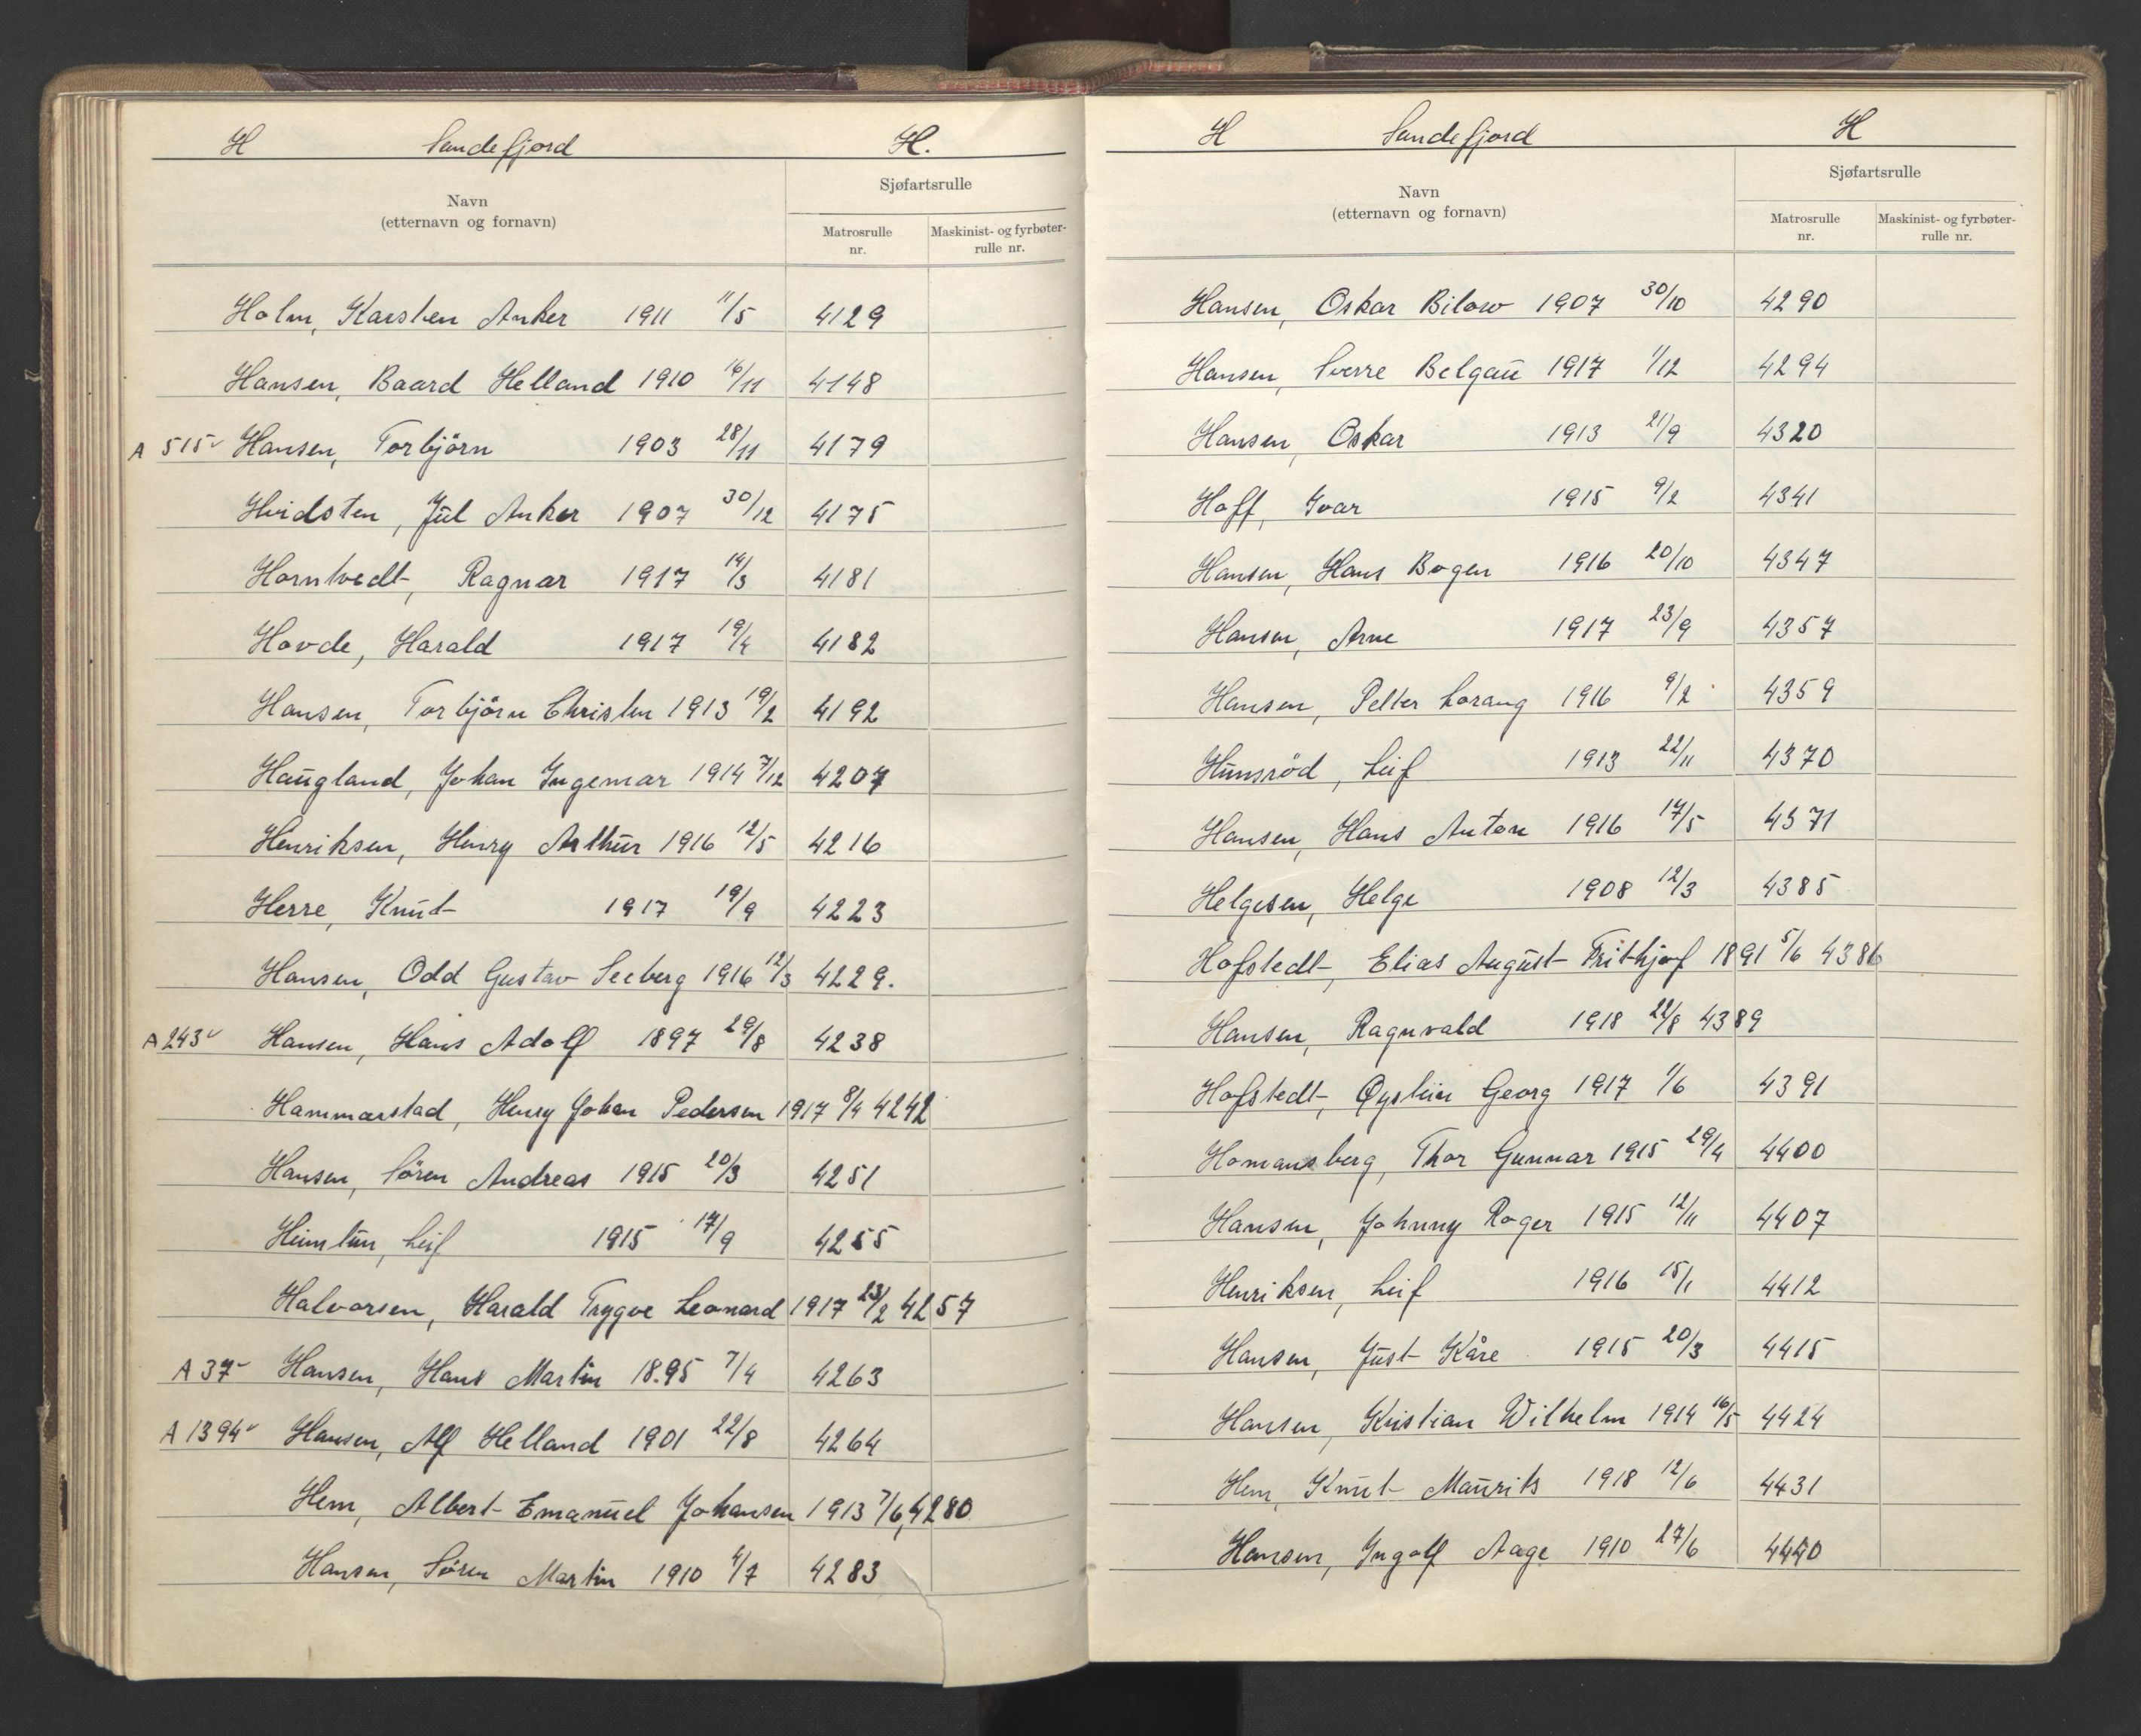 H Sandefjord H.
Navn
(etternavn og fornavn)
Sjøfartsrulle
Matrosrulle nr.
Maskinist- og fyrbøter-rulle nr.
Holm, Karsten Anker 1911 11/5 4129
Hansen, Baard Helland 1910 16/11 4148
A 515 Hansen, Torbjörn 1903 28/11 4179
Hvidsten, Jül Anker 1907 30/12 4175
Horntvedt, Ragnar 1917 14/3 4181
Hovde, Harald 1917 19/4 4182
Hansen, Torbjörn Christen 1913 19/2 4192
Haŭgland, Johan Ingemar 1914 7/12 4207
Henriksen, Henry Arthŭr 1916 12/5 4216
Herre, Knŭt 1917 19/9 4223
Hansen, Odd Gustav Seeberg 1916 12/3 4229.
A 243 Hansen, Hans Adolf 1897 29/8 4238
Hammarstad, Henry Johan Pedersen 1917 8/4 4242
Hansen, Sören Andreas 1915 20/3 4251
Heimtun, Leif 1915 17/9 4255
Halvorsen, Harald Trygve Leonard 1917 23/2 4257
A 37 Hansen, Hans Martin 18.95 7/4 4263
A 1394 Hansen, Alf Helland 1901 22/8 4264
Hem, Albert Emanŭel Johansen 1913 7/6, 4280
Hansen, Sören Martin 1910 4/7 4283
H Sandefjord H
Navn
(etternavn og fornavn)
Sjøfartsrulle
Matrosrulle nr.
Maskinist- og fyrbøter-rulle nr.
Hansen, Oskar Bilow 1907 30/10 4290
Hansen, Sverre Belgaŭ 1917 1/12 4294
Hansen, Oskar 1913 21/9 4320
Hoff, Ivar 1915 9/2 4341
Hansen, Hans Bogen 1916 20/10 4347
Hansen, Arne 1917 23/9 4357
Hansen, Petter Lorang 1916 9/2 4359
Hŭnsröd, Leif 1913 22/11 4370
Hansen, Hans Anton 1916 17/5 4371
Helgesen, Helge 1908 12/3 4385
Hofstedt, Elias Aŭgŭst Frithjof 1891 5/6 4386
Hansen, Ragnvald 1918 22/8 4389
Hofstedt, Øystein Georg 1917 1/6 4391
Homansberg, Thor Gunnar 1915 29/4 4400
Hansen, Johnny Roger 1915 12/11 4407
Henriksen, Leif 1916 15/1 4412
Hansen, Jŭst Kåre 1915 20/3 4415
Hansen, Kristian Wilhelm 1914 16/5 4424
Hem, Knŭt Maŭrits 1918 12/6 4431
Hansen, Ingolf Aage 1910 27/6 4440